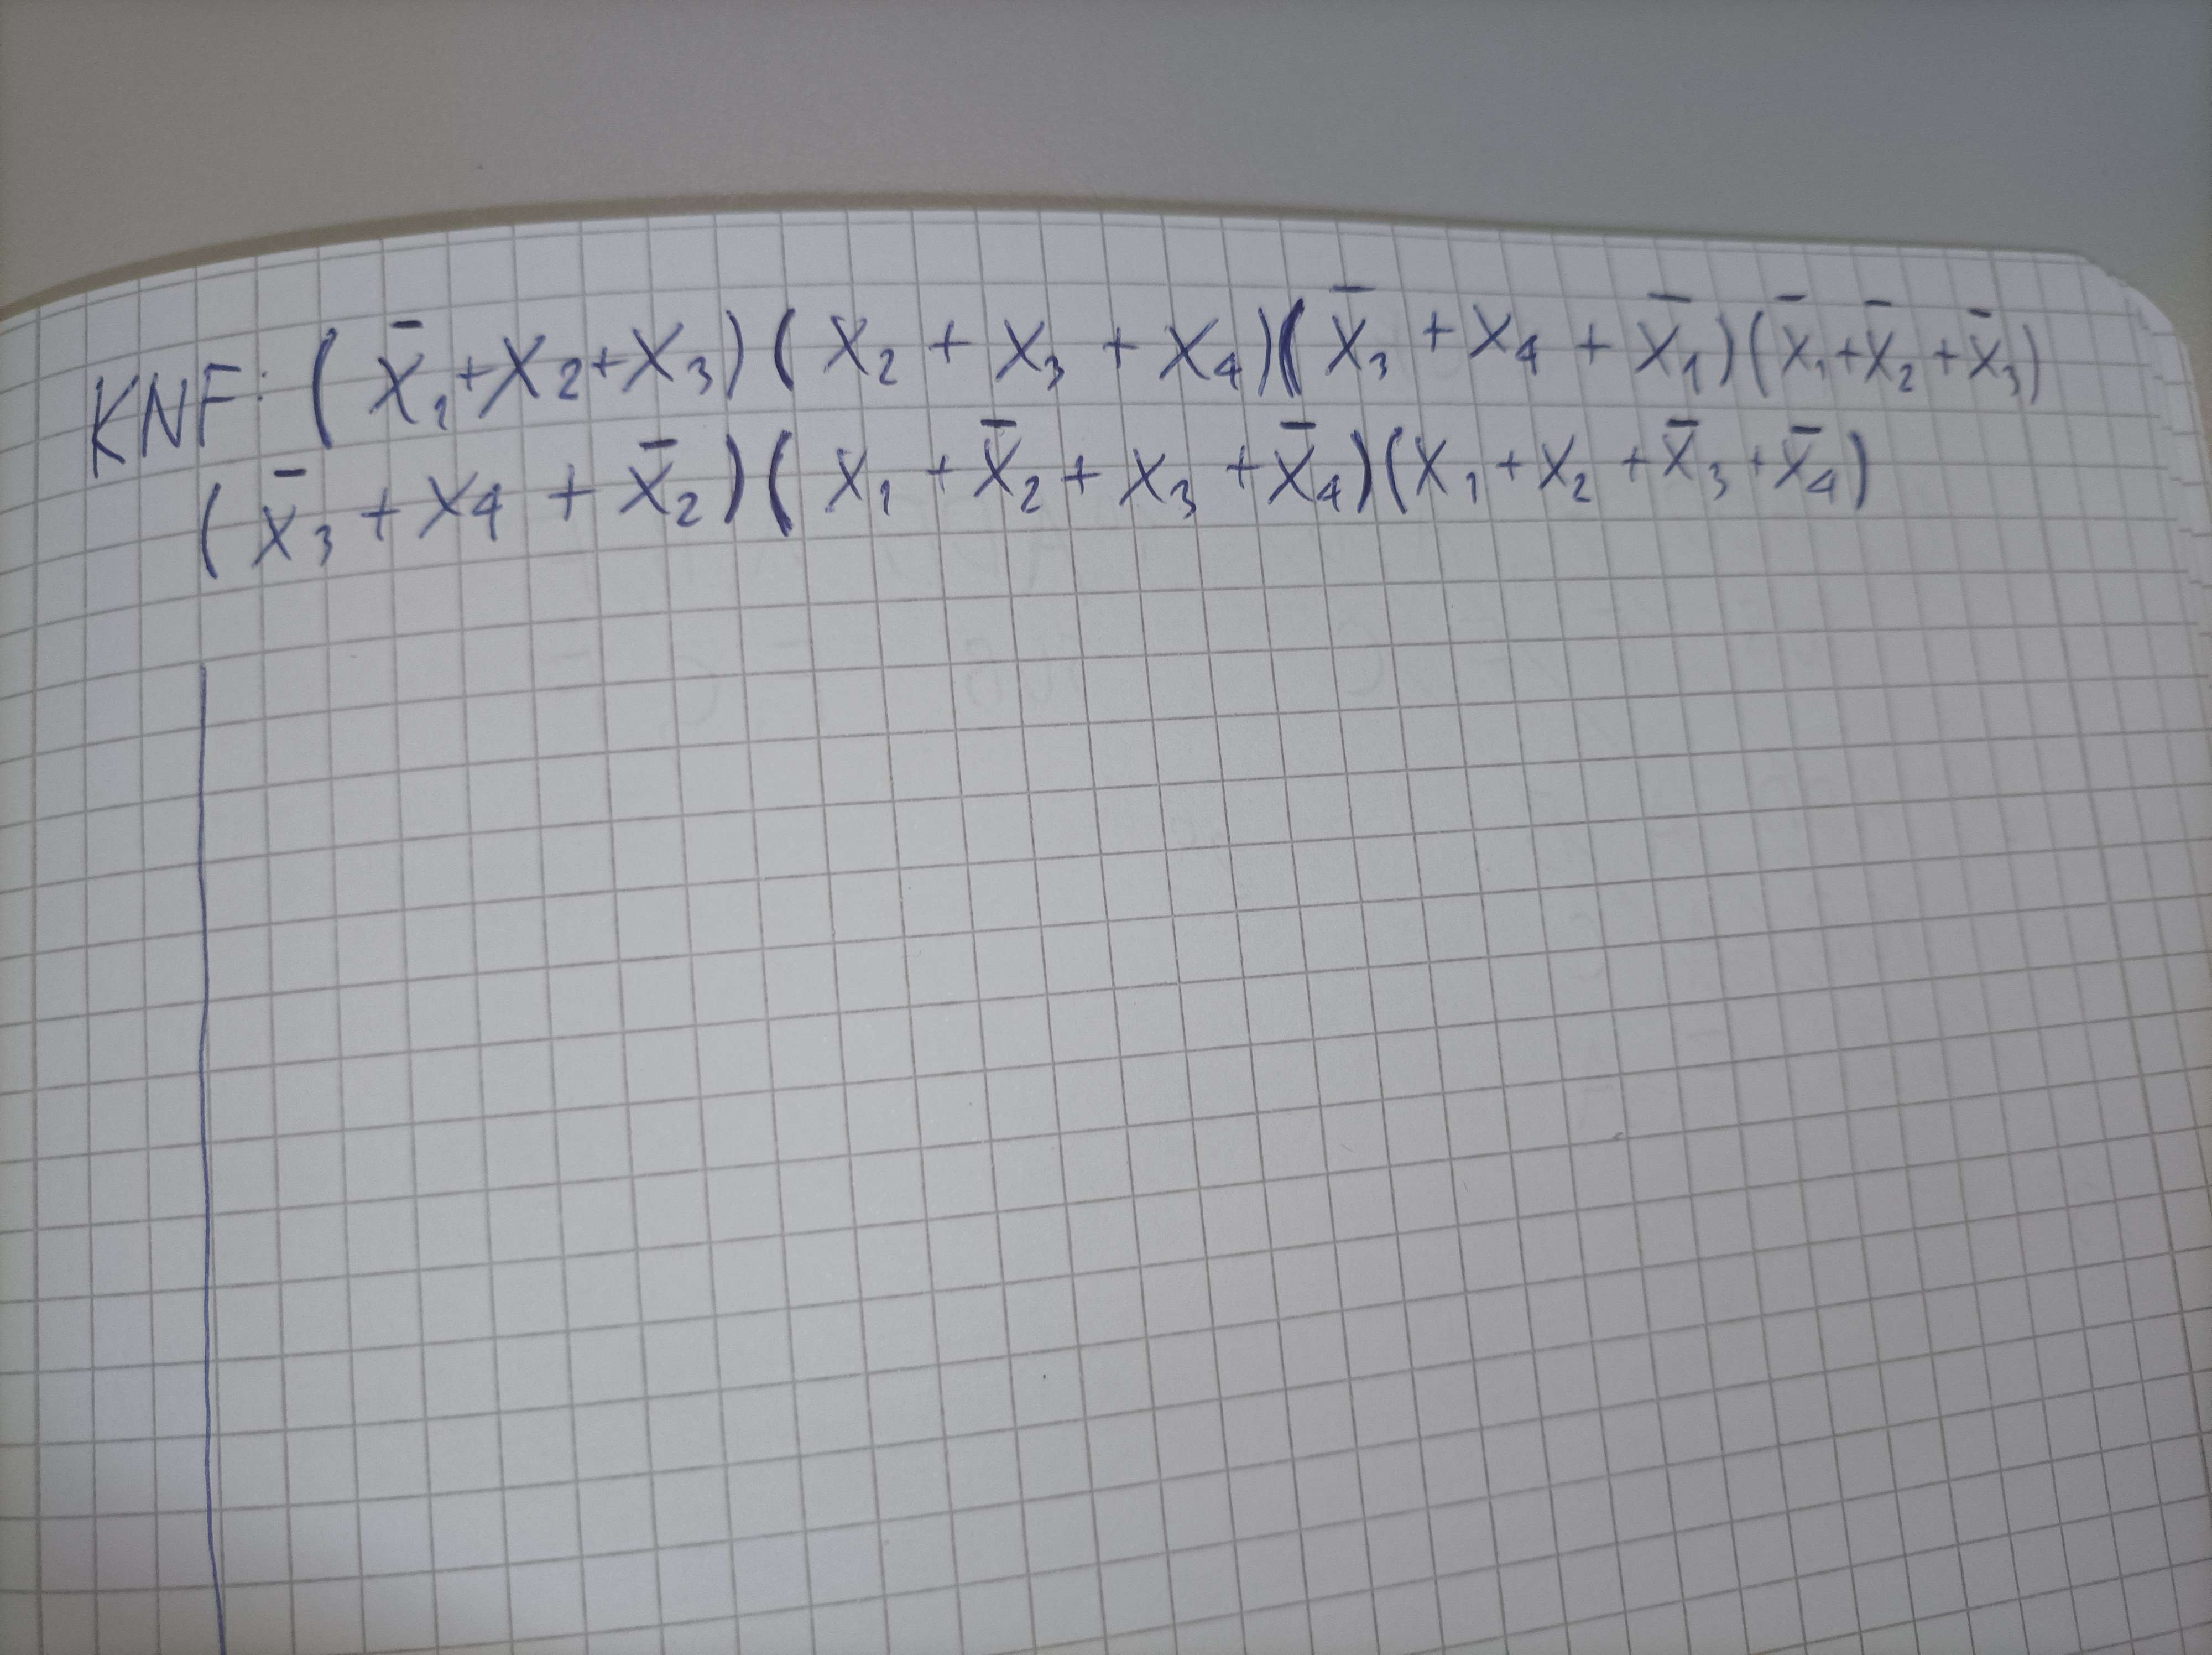 KNF: (x̄₁+x₂+x₃)(x₂ + x₃ + x₄)(x̄₃ + x₄ + x̄₁)(x̄₁+x̄₂+x̄₃)
(x̄₃ + x₄ + x̄₂)(x₁ + x̄₂ + x₃ + x̄₄)(x₁ + x₂ + x̄₃ + x̄₄)